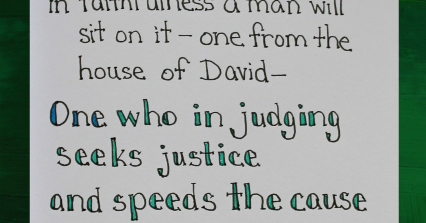 in faithfulness a man will
sit on it – one from the
house of David –
One who in judging
seeks justice
and speeds the cause